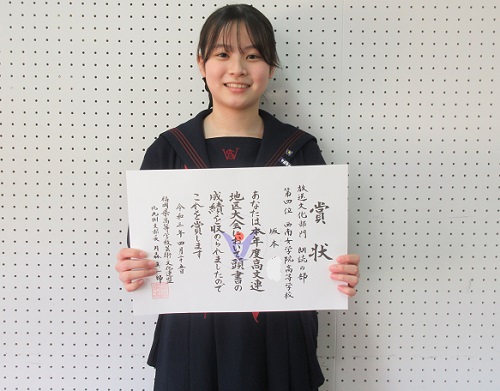 賞状
放送文化部門 朗読の部
第四位 西南女学院高等学校
坂本
あなたは本年度高文連
地区大会において頭書の
成績を収められましたので
これを賞します
令和五年四月二十三日
福岡県高等学校芸術文化連盟
北九州支部長